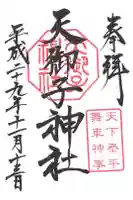 奉拝
天下泰平
舞車神事
天御子神社
平成二十九年十一月十三日